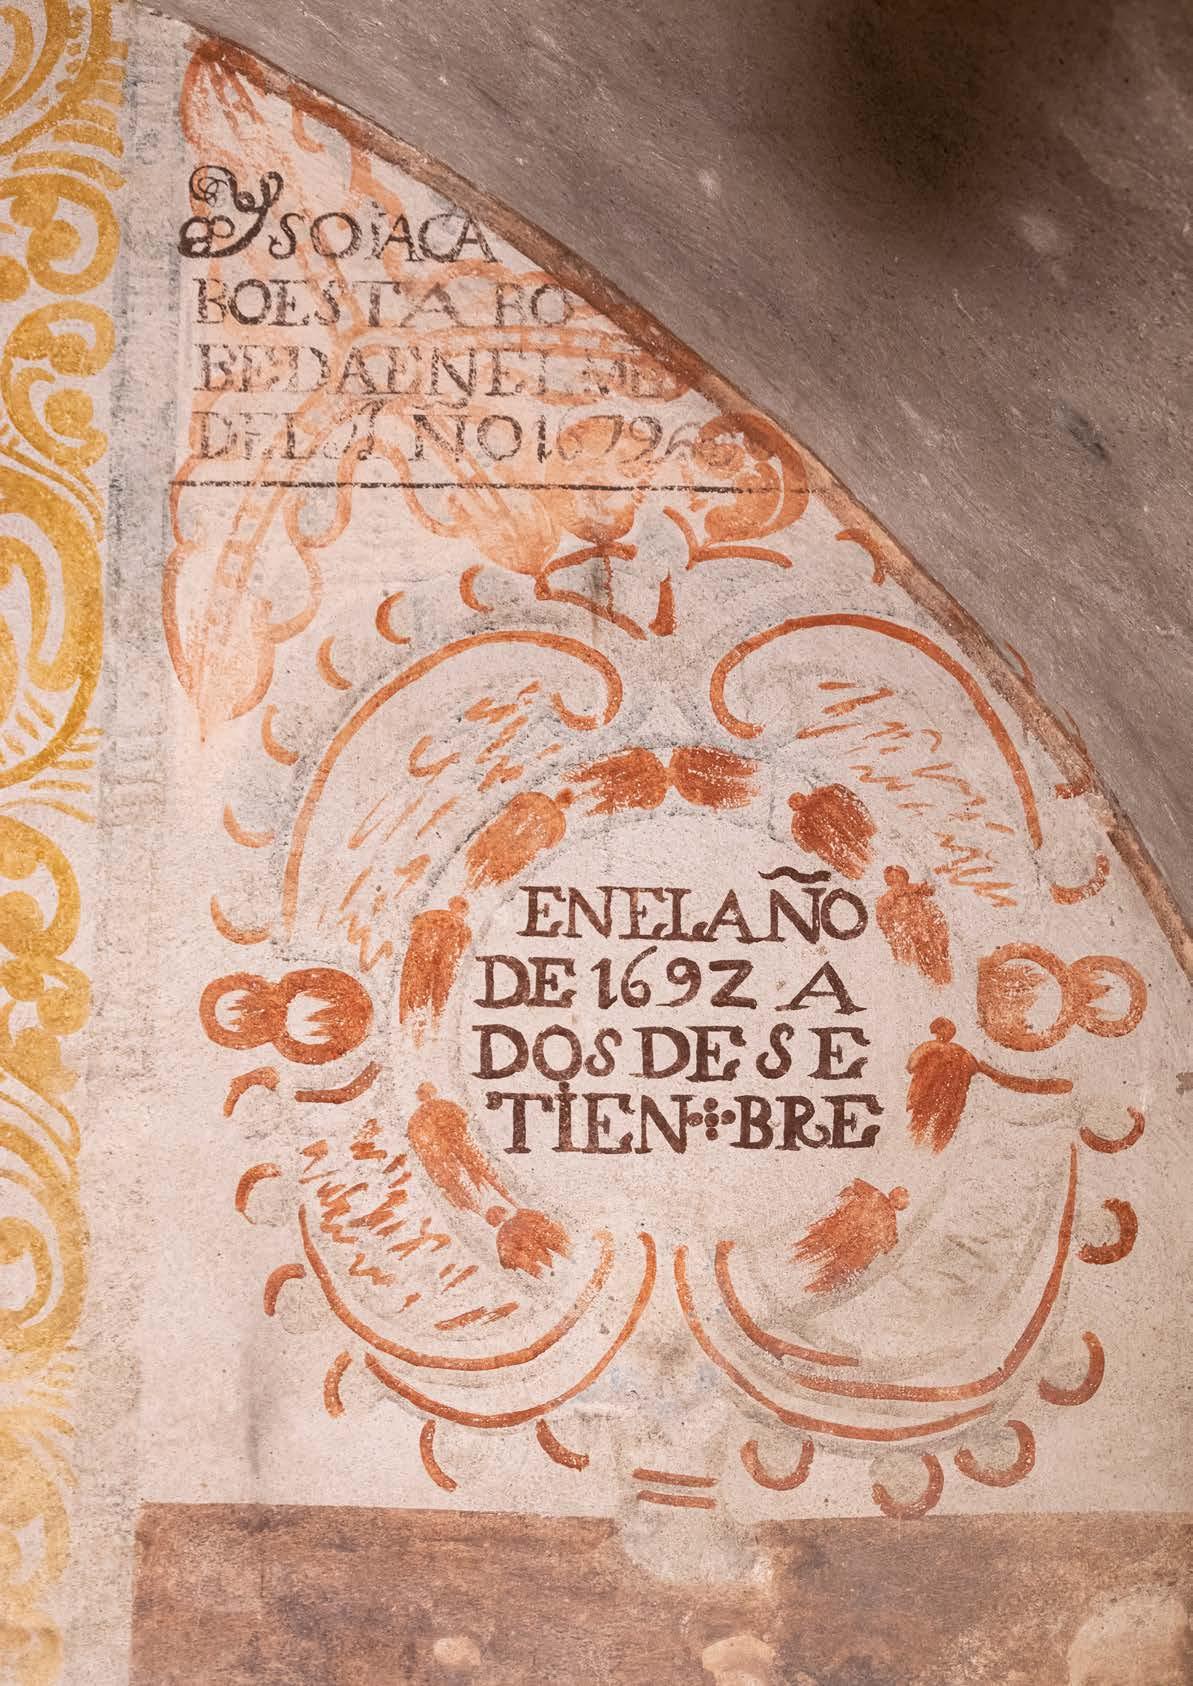 YSOIACA
BOESTA BO
BEDAENEL
DELAÑO1679
ENELAÑO
DE 1692 A
DOS DE SE
TIEN BRE